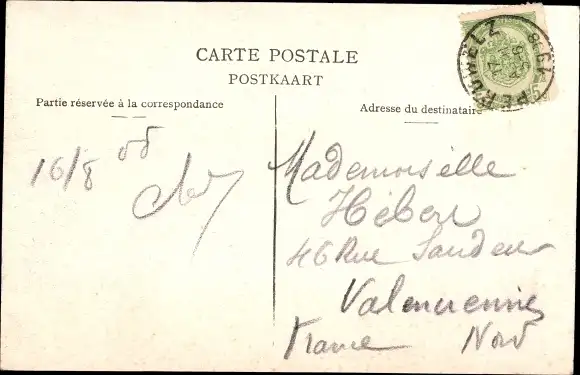 CARTE POSTALE
POSTKAART
Partie réservée à la correspondance
Adresse du destinataire
16/8 08
Mademoiselle
46 Rue
Valenciennes
France Nord
PERUWELZ
5